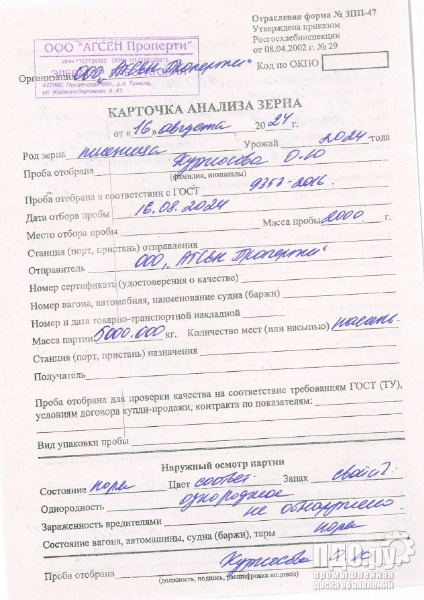 Отраслевая форма № ЗПП-47
Утверждена приказом
Росгосхлебинспекции
от 08.04.2002 г. № 29
Код по ОКПО
ООО "АГСЕН Проперти"
442900, Пензенская обл., р.п. Тамала,
ул. Железнодорожная, д. 41
Организация ООО „АГСЕН Проперти"
КАРТОЧКА АНАЛИЗА ЗЕРНА
от « 16 » августа 2024 г.
Род зерна пшеница Урожай 2024 года
Проба отобрана О.Ю
(фамилия, инициалы)
Проба отобрана в соответствии с ГОСТ 9353-2016
Дата отбора пробы 16.08.2024
Место отбора пробы Масса пробы 2000 г.
Станция (порт, пристань) отправления
Отправитель ООО „АГСЕН Проперти"
Номер сертификата (удостоверения о качестве)
Номер вагона, автомобиля, наименование судна (баржи)
Номер и дата товарно-транспортной накладной
Масса партии 5000.000 кг. Количество мест (или насыпью) насыпь
Станция (порт, пристань) назначения
Получатель
Проба отобрана для проверки качества на соответствие требованиям ГОСТ (ТУ),
условиям договора купли-продажи, контракта по показателям:
Вид упаковки пробы
Наружный осмотр партии
Состояние норм Цвет соответ. Запах свойст.
Однородность однородное
Зараженность вредителями не обнаружено
Состояние вагона, автомашины, судна (баржи), тары норм
Проба отобрана
(должность, подпись, расшифровка подписи)
ПДО.ру
промышленная
доска объявлений